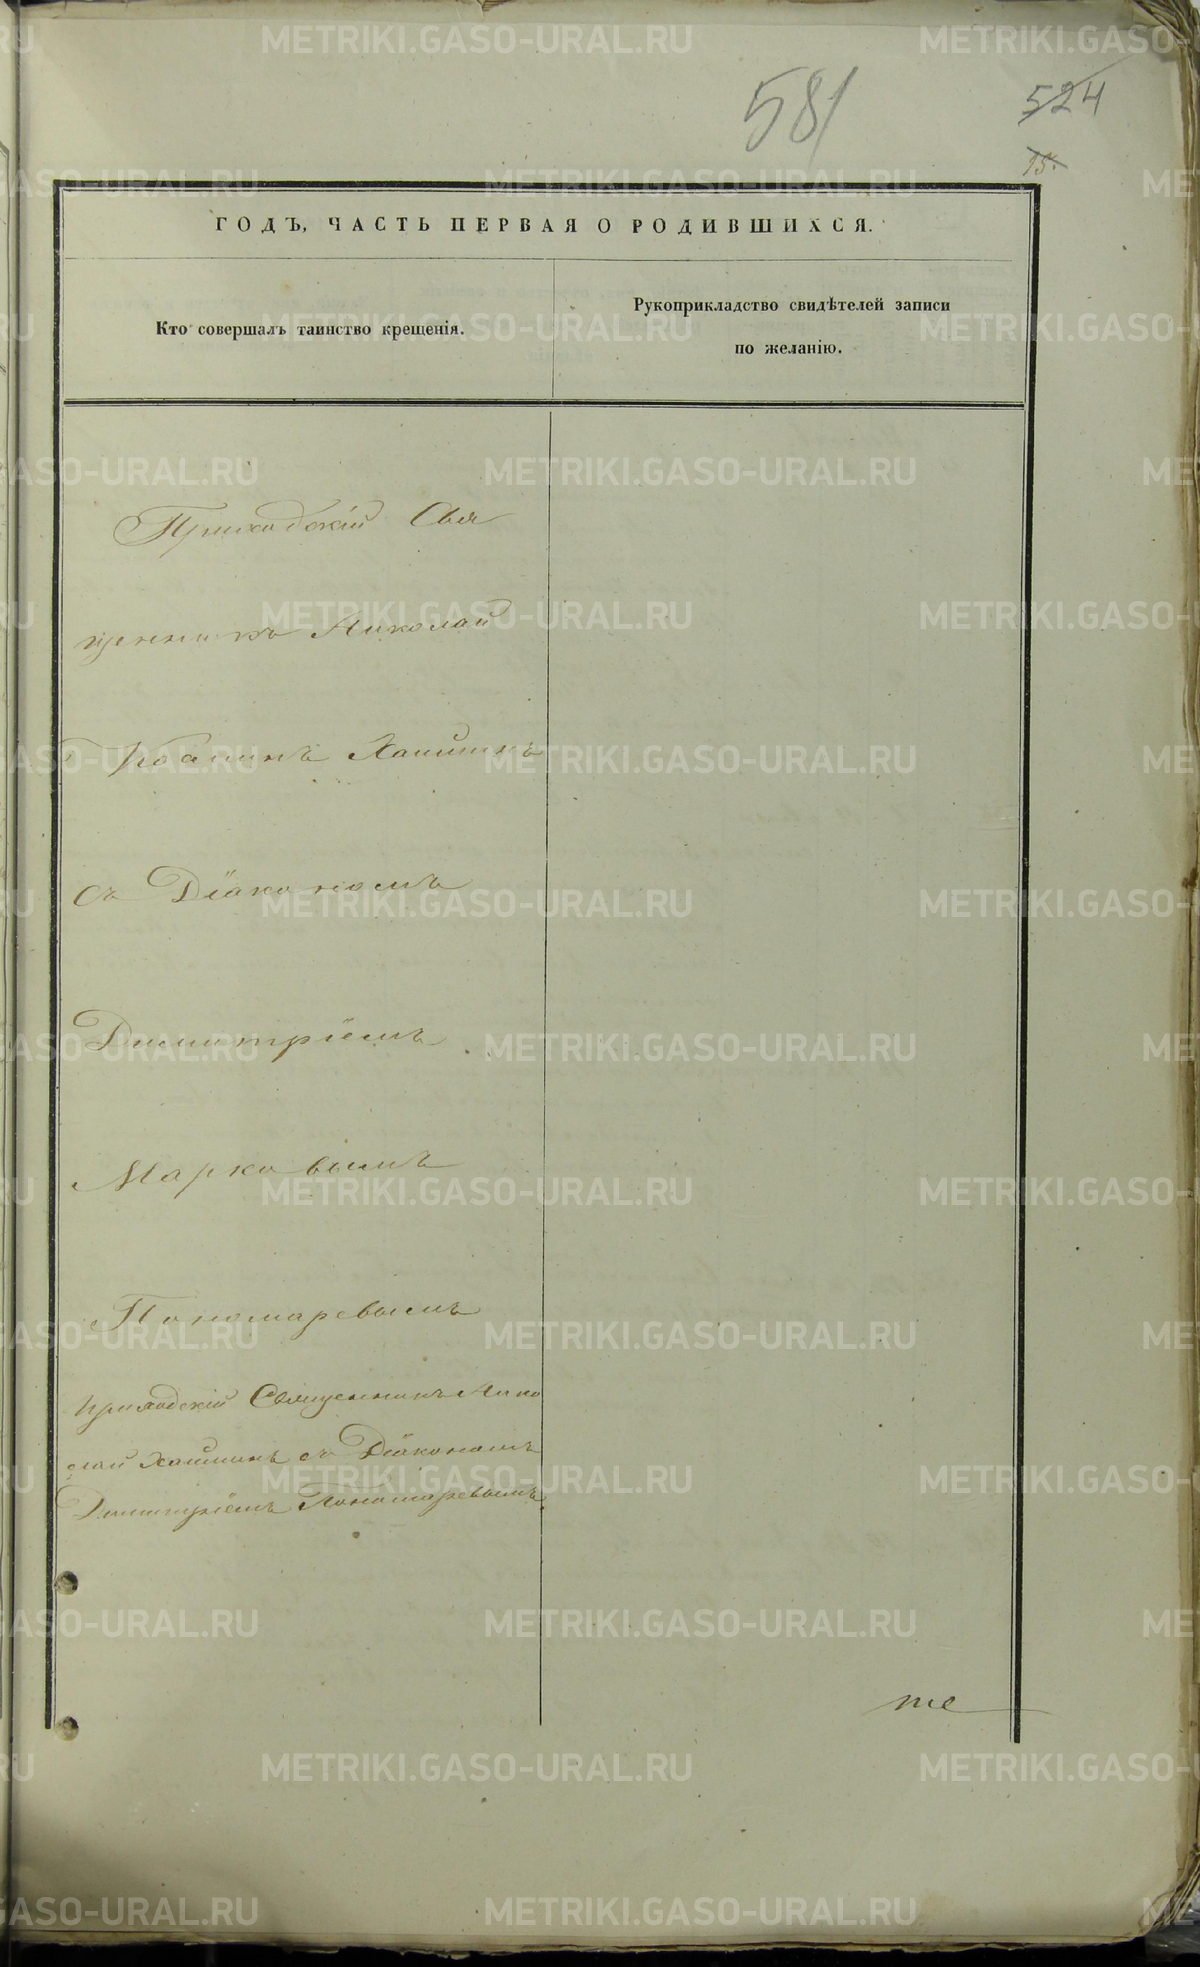 581
524
15.
ГОДЪ, ЧАСТЬ ПЕРВАЯ О РОДИВШИХСЯ.
Кто совершалъ таинство крещенія.
Рукоприкладство свидѣтелей записи
по желанію.
Приходскій Свя
щенникъ Николай
Хаминъ
съ Діакономъ
Димитріемъ
Марковымъ
Пономаревымъ
приходскій Священникъ Нико
лай Хаминъ съ Діакономъ
Димитріемъ Пономаревымъ
те
METRIKI.GASO-URAL.RU